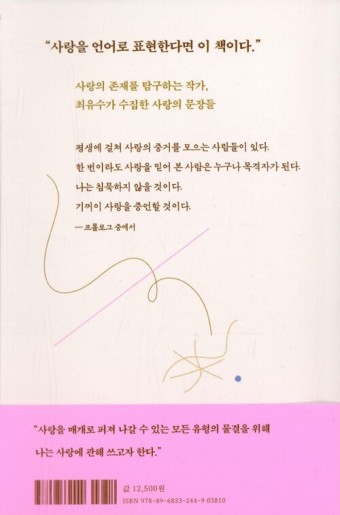 “사랑을 언어로 표현한다면 이 책이다.”
사랑의 존재를 탐구하는 작가,
최유수가 수집한 사랑의 문장들
평생에 걸쳐 사랑의 증거를 모으는 사람들이 있다.
한 번이라도 사랑을 믿어 본 사람은 누구나 목격자가 된다.
나는 침묵하지 않을 것이다.
기꺼이 사랑을 증언할 것이다.
— 프롤로그 중에서
“사랑을 매개로 퍼져 나갈 수 있는 모든 유형의 물결을 위해
나는 사랑에 관해 쓰고자 한다.”
값 12,500원
ISBN 978-89-6833-244-9 03810